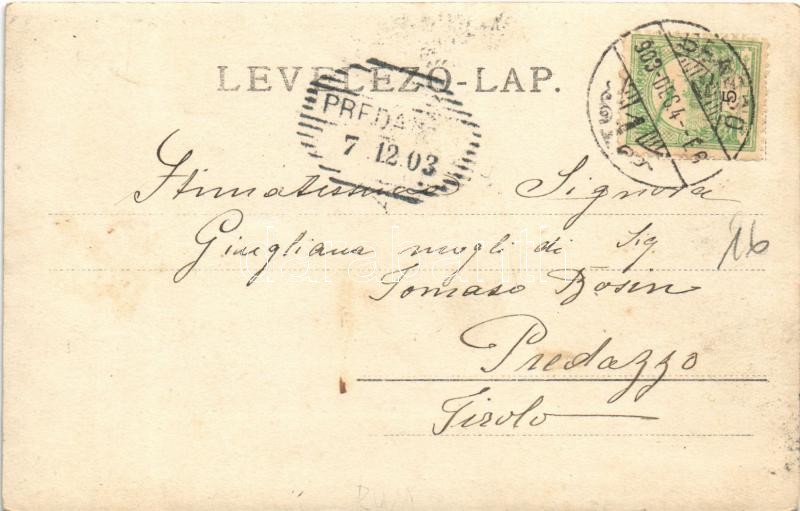 LEVELEZŐ-LAP.
PREDA
7 12 03
903 DEC. 4
5
Stimatissma Signora
Giugliana mogli di Sig.
Tomaso Bosin
Predazzo
Tirolo
16